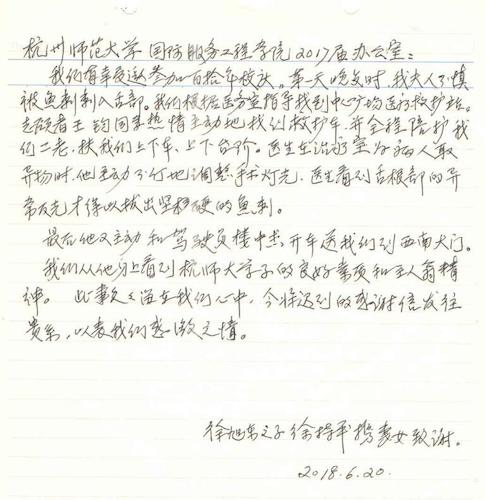 杭州师范大学国际服务工程学院2017届办公室：
我们有幸受邀参加百拾年校庆。第一天晚交时，我夫人不慎
被鱼刺刺入舌部。我们根据医务室指导找到中心广场医疗救护站。
志愿者王钧同学热情主动地找到救护车，并全程陪护我
们二老，扶我们上下车、上下台阶。医生在治疗室为病人取
异物时，他主动不停地调整手术灯光，医生看到舌根部的异
常反光才得以拔出坚硬的鱼刺。
最后他又主动和驾驶员楼中杰，开车送我们到西南大门。
我们从他身上看到杭师大学子的良好素质和主人翁精
神。此事久久溢在我们心中，今将迟到的感谢信发往
贵系，以表我们感激之情。
徐旭东之子徐持平携妻女致谢。
2018.6.20.